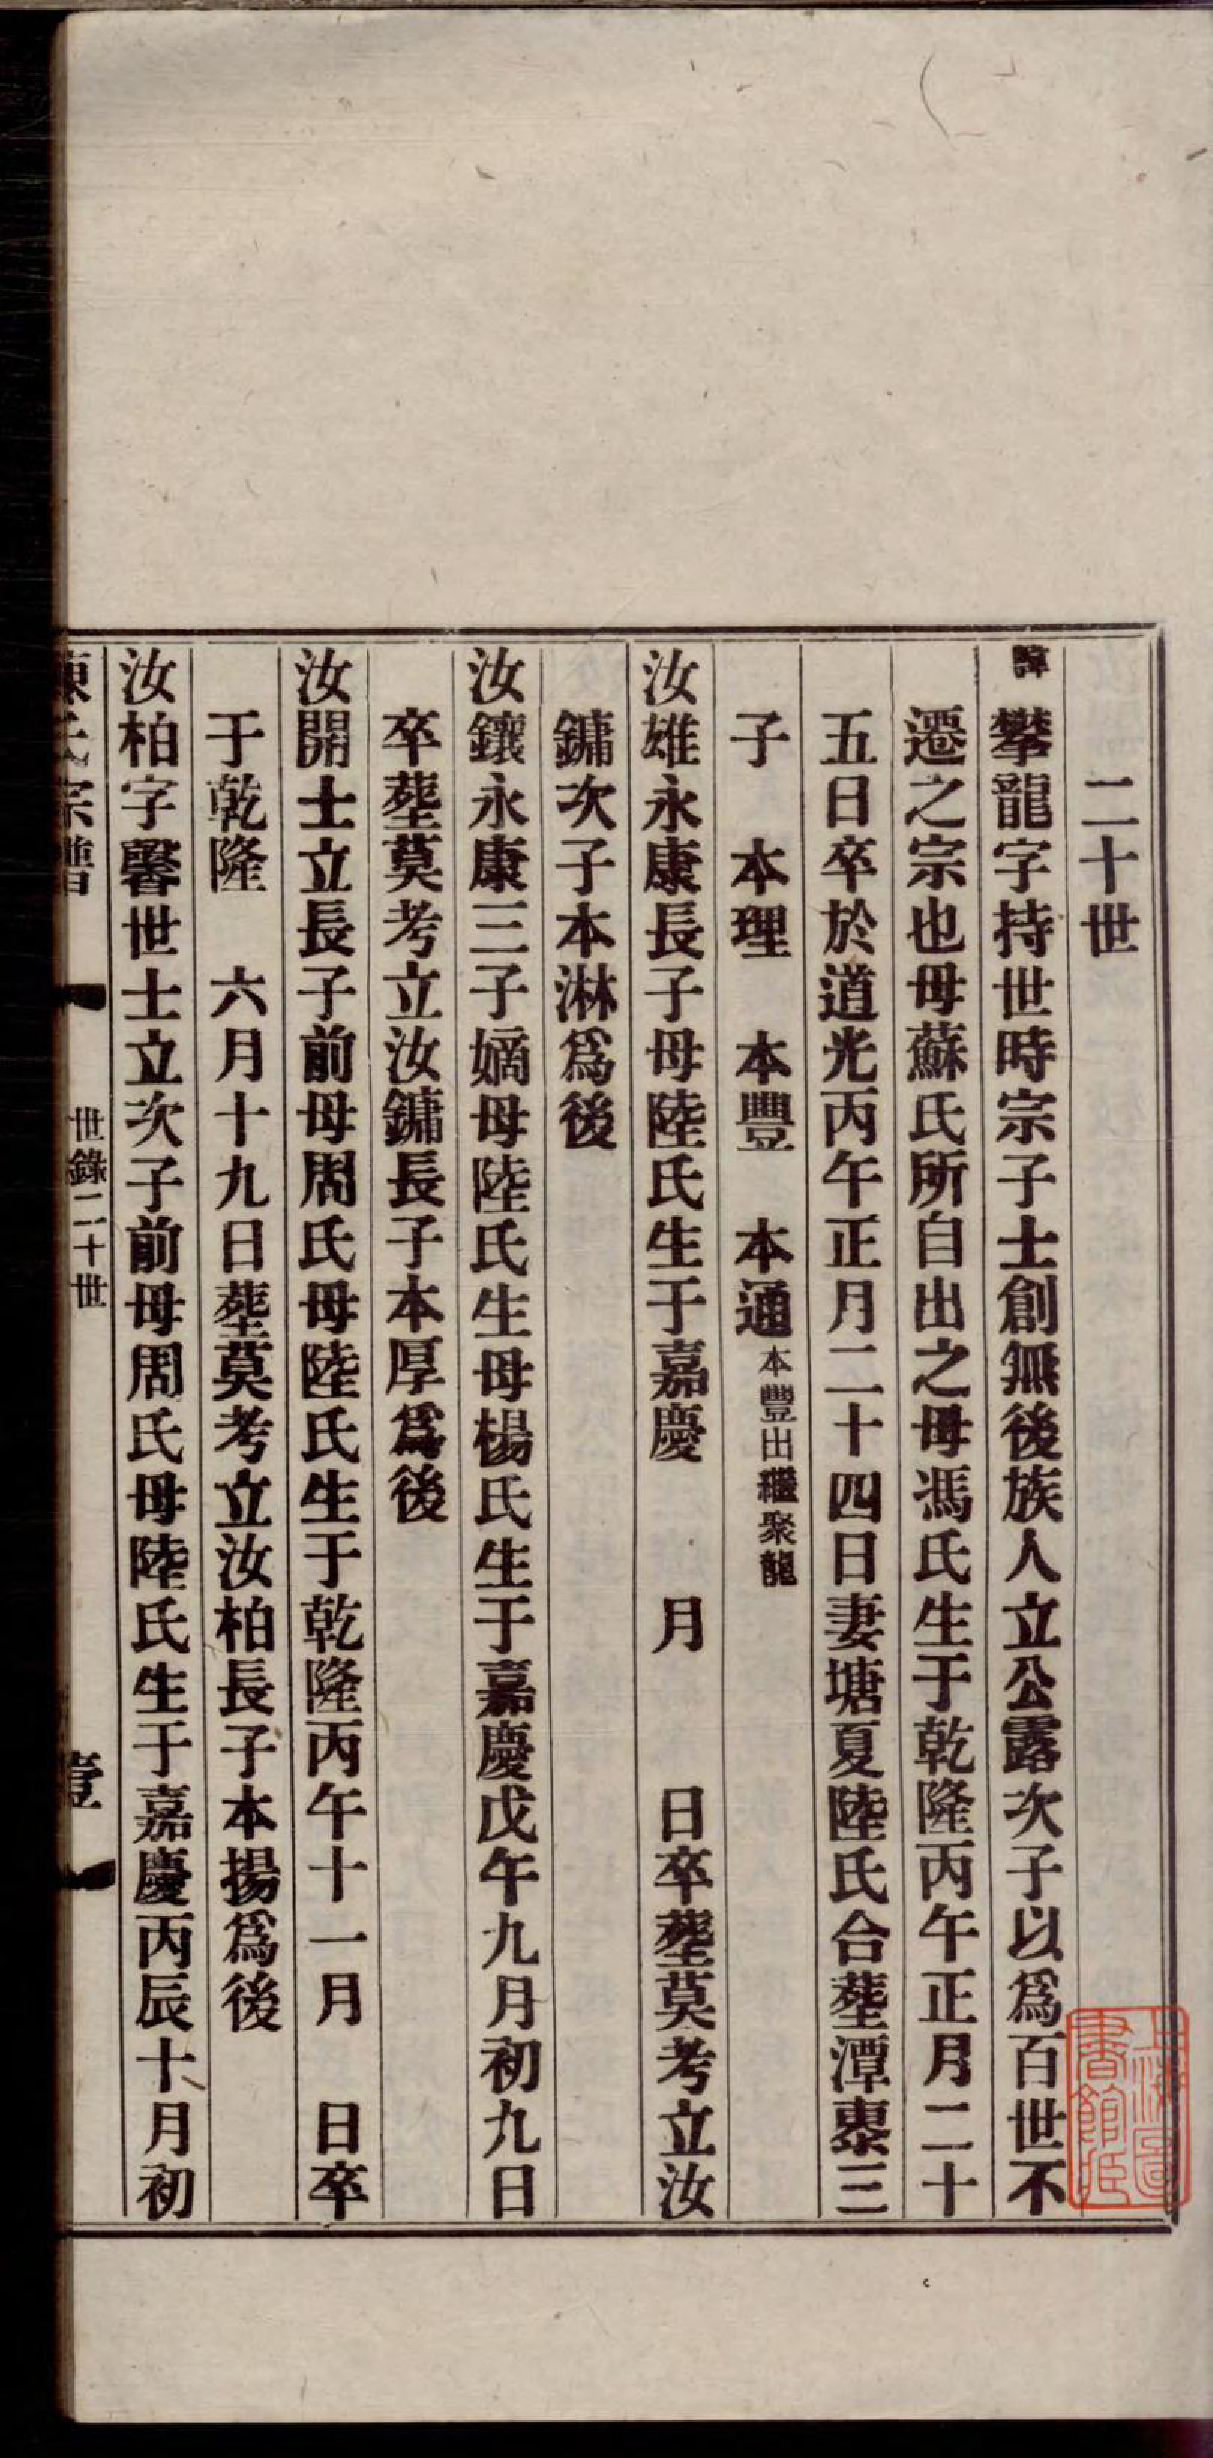 二十世
諱攀龍字持世時宗子士創無後族人立公露次子以爲百世不
遷之宗也母蘇氏所自出之母馮氏生于乾隆丙午正月二十
五日卒於道光丙午正月二十四日妻塘夏陸氏合塟潭東三
子 本理 本豐 本通本豐出繼聚龍
汝雄永康長子母陸氏生于嘉慶 月 日卒塟莫考立汝
鏞次子本淋爲後
汝鑲永康三子嫡母陸氏生母楊氏生于嘉慶戊午九月初九日
卒塟莫考立汝鏞長子本厚爲後
汝開士立長子前母周氏母陸氏生于乾隆丙午十一月 日卒
于乾隆 六月十九日塟莫考立汝柏長子本揚爲後
汝柏字馨世士立次子前母周氏母陸氏生于嘉慶丙辰十月初
陳氏宗譜 世錄二十世 壹
上海圖書館藏